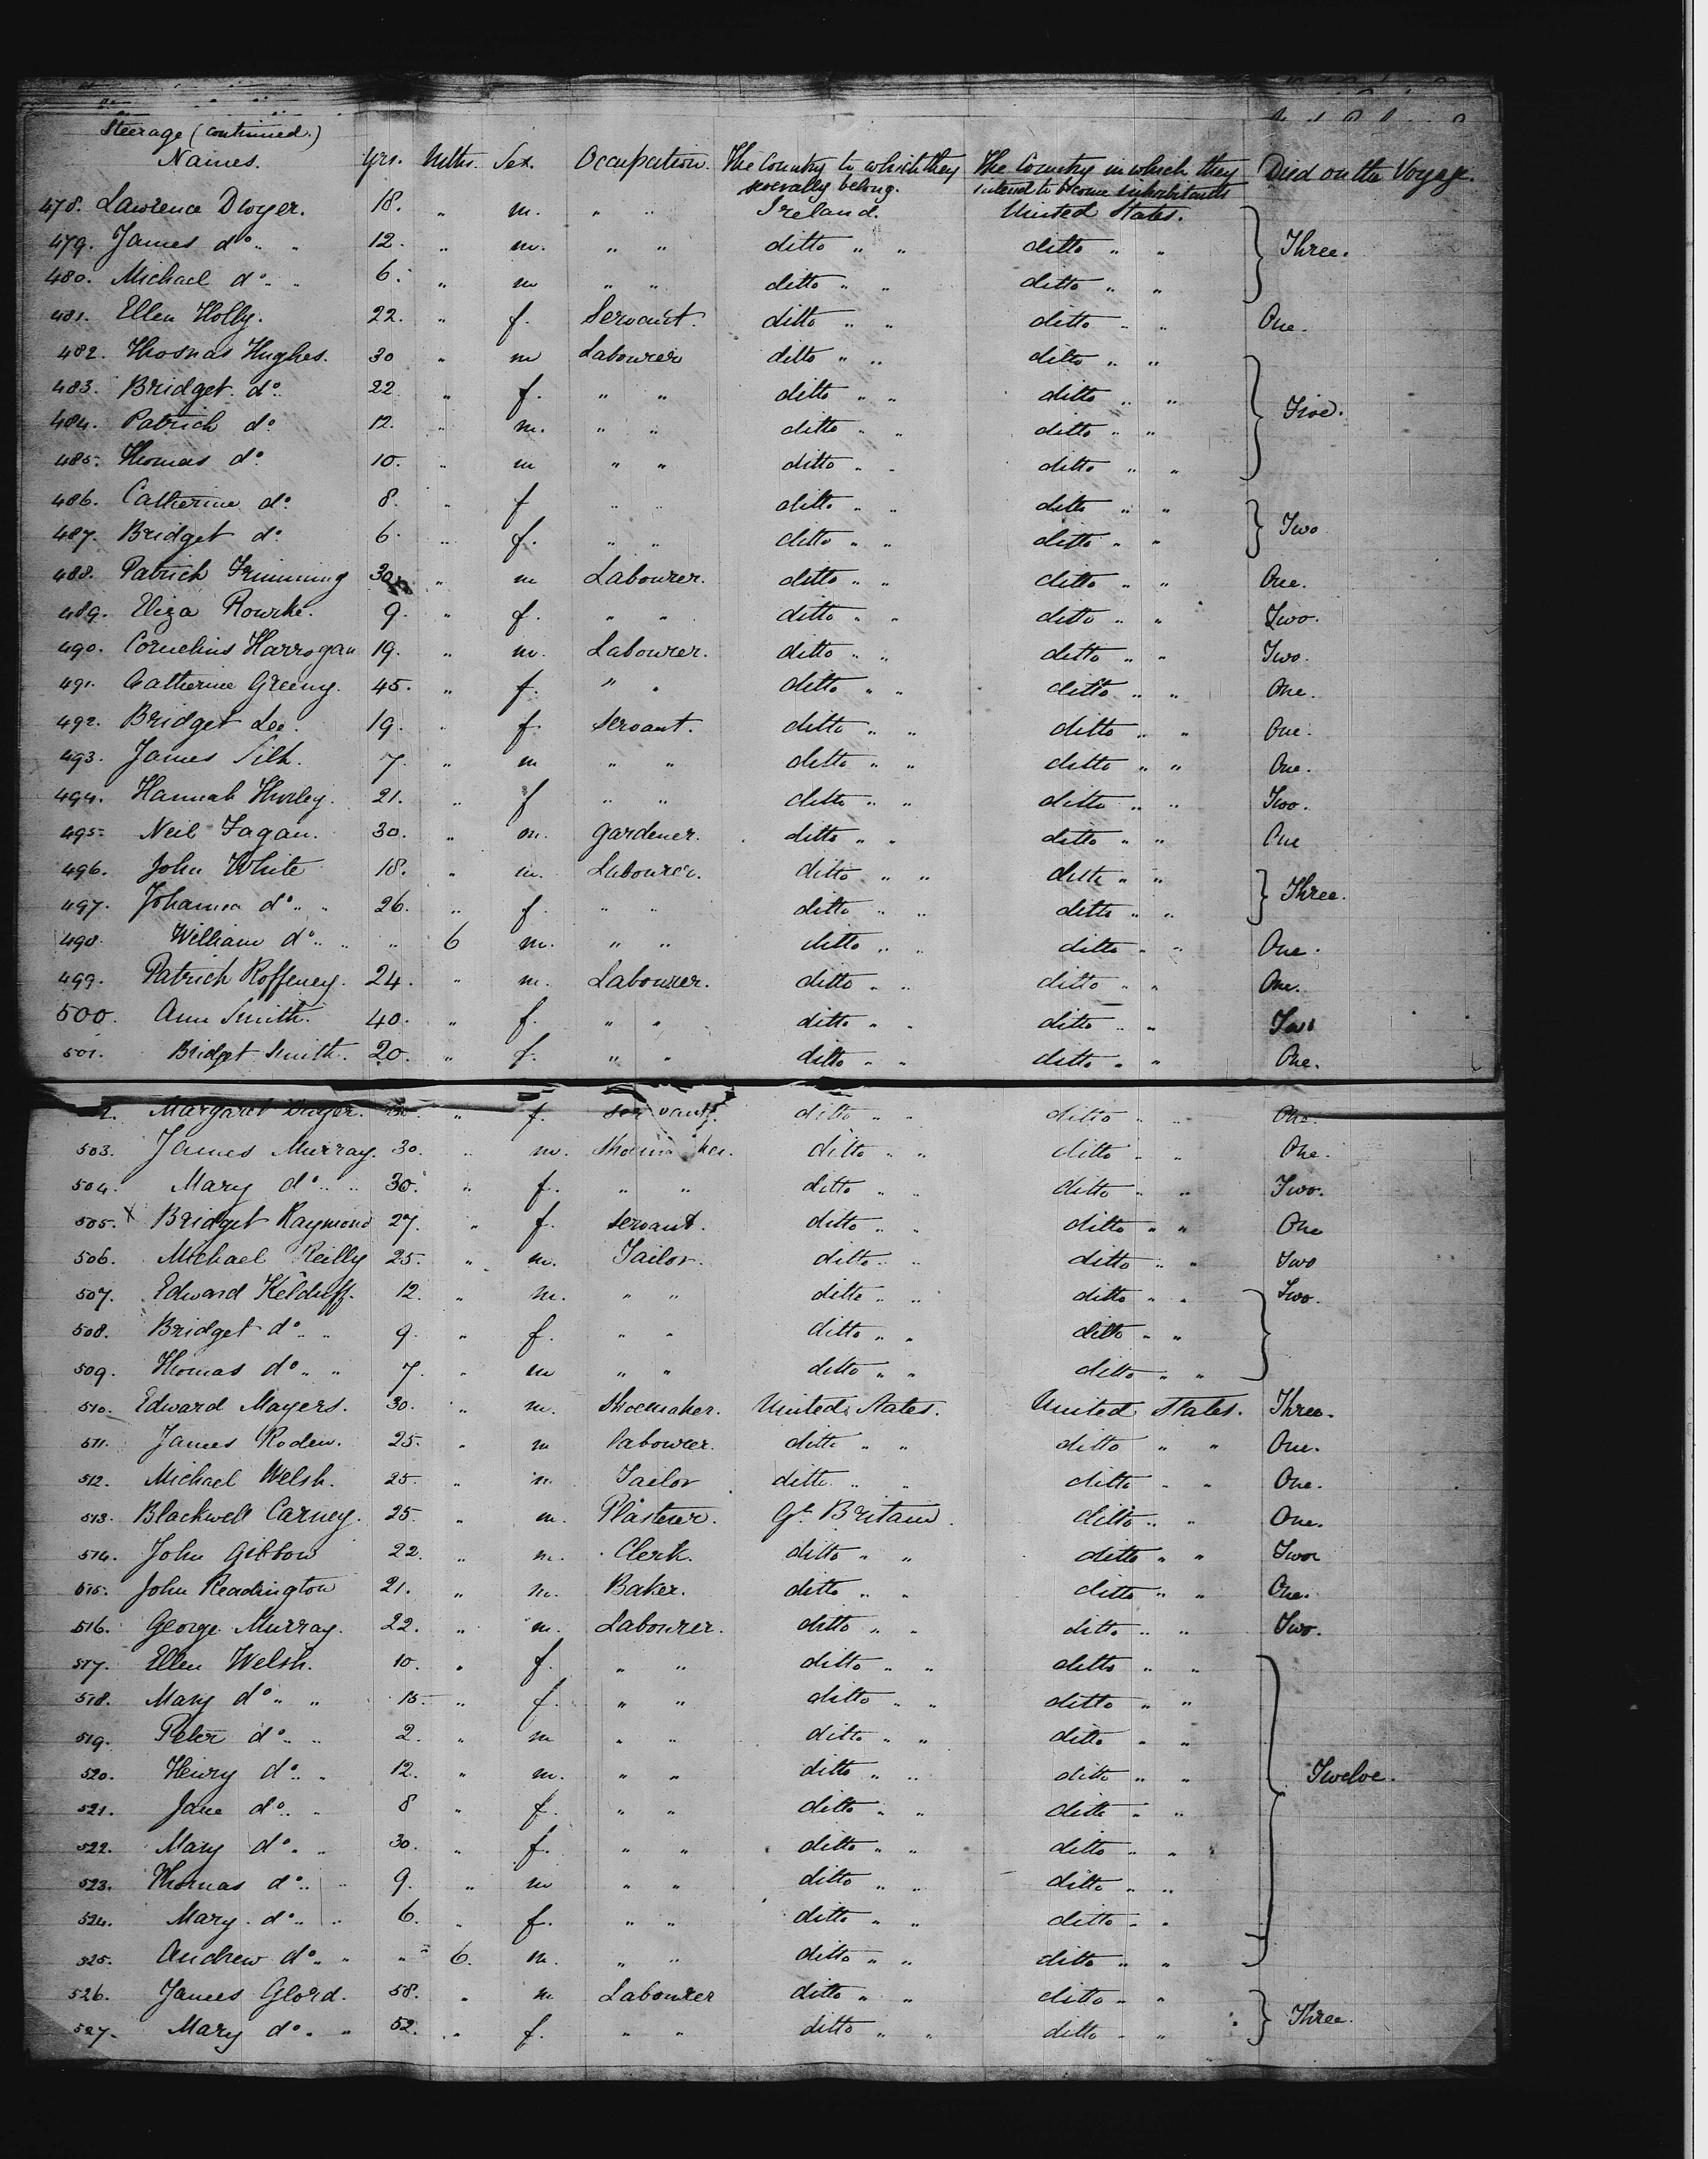 Steerage (continued.)
Names. Yrs. Mths. Sex. Occupation. The Country to which they severally belong. The Country in which they intend to become inhabitants Died on the Voyage.
478. Lawrence Dwyer. 18. " m. " " Ireland. United States.
479. James do " " 12. " m. " " ditto " " ditto " " } Three.
480. Michael do " " 6. " m " " ditto " " ditto " "
481. Ellen Holly. 22. " f. Servant. ditto " " ditto " " One.
482. Thomas Hughes. 30 " m Labourer ditto " " ditto " "
483. Bridget do 22 " f. " " ditto " " ditto " "
484. Patrick do 12. " m. " " ditto " " ditto " " } Five.
485. Thomas do 10. " m " " ditto " " ditto " "
486. Catherine do 8. " f " " ditto " " ditto " "
487. Bridget do 6. " f. " " ditto " " ditto " " } Two
488. Patrick Frimming 30 " m Labourer. ditto " " ditto " " One.
489. Eliza Rourke. 9. " f. " " ditto " " ditto " " Two.
490. Cornelius Harrogan 19. " m. Labourer. ditto " " ditto " " Two.
491. Catherine Greeny. 45. " f. " " ditto " " ditto " " One.
492. Bridget Lee. 19. " f. Servant. ditto " " ditto " " One.
493. James Silk. 7. " m " " ditto " " ditto " " One.
494. Hannah Hurley. 21. " f " " ditto " " ditto " " Two.
495. Neil Fagan. 30. " m. gardener. ditto " " ditto " " One
496. John White 18. " m. Labourer. ditto " " ditto " "
497. Johanna do " " 26. " f. " " ditto " " ditto " " } Three.
498. William do " " " 6 m. " " ditto " " ditto " " One.
499. Patrick Roffeney. 24. " m. Labourer. ditto " " ditto " " One.
500. Ann Smith. 40. " f. " " ditto " " ditto " " Two
501. Bridget Smith. 20. " f. " " ditto " " ditto " " One.
2. Margaret Dwyer. " f. servant. ditto " " ditto " " One.
503. James Murray. 30. " m. Shoemaker. ditto " " ditto " " One.
504. Mary do " " 30. " f. " " ditto " " ditto " " Two.
505. X Bridget Raymond 27. " f. servant. ditto " " ditto " " One
506. Michael Reilly 25. " m. Tailor. ditto " " ditto " " Two
507. Edward Kelduff. 12. " m. " " ditto " " ditto " " Two.
508. Bridget do " " 9. " f. " " ditto " " ditto " " }
509. Thomas do " " 7. " m " " ditto " " ditto " "
510. Edward Mayers. 30. " m. Shoemaker. United States. United States. Three.
511. James Roden. 25. " m labourer. ditto " " ditto " " One.
512. Michael Welsh. 25. " m. Tailor ditto " " ditto " " One.
513. Blackwell Carney. 25. " m. Plasterer. Gt. Britain. ditto " " One.
514. John Gibbon 22. " m. Clerk. ditto " " ditto " " Two
515. John Readington 21. " m. Baker. ditto " " ditto " " One.
516. George Murray. 22. " m. Labourer. ditto " " ditto " " Two.
517. Ellen Welsh. 10. " f. " " ditto " " ditto " "
518. Mary do " " 15. " f. " " ditto " " ditto " "
519. Peter do " " 2. " m " " ditto " " ditto " "
520. Henry do " " 12. " m. " " ditto " " ditto " " } Twelve.
521. Jane do " " 8 " f. " " ditto " " ditto " "
522. Mary do " " 30. " f. " " ditto " " ditto " "
523. Thomas do " " 9. " m " " ditto " " ditto " "
524. Mary do " " 6. " f. " " ditto " " ditto " "
525. Andrew do " " " 6. m. " " ditto " " ditto " "
526. James Glord. 58. " m. Labourer ditto " " ditto " "
527. Mary do " " 52. " f. " " ditto " " ditto " " } Three.